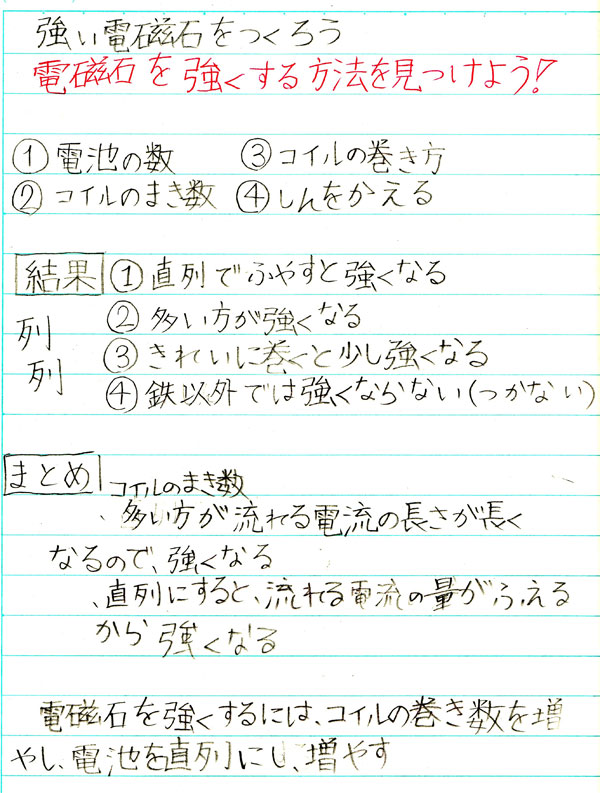 強い電磁石をつくろう
電磁石を強くする方法を見つけよう!
①電池の数 ③コイルの巻き方
②コイルのまき数 ④しんをかえる
結果 ①直列でふやすと強くなる
②多い方が強くなる
列
③きれいに巻くと少し強くなる
列
④鉄以外では強くならない(つかない)
まとめ コイルのまき数
、多い方が流れる電流の長さが長く
なるので、強くなる
、直列にすると、流れる電流の量がふえる
から強くなる
電磁石を強くするには、コイルの巻き数を増
やし、電池を直列にし、増やす